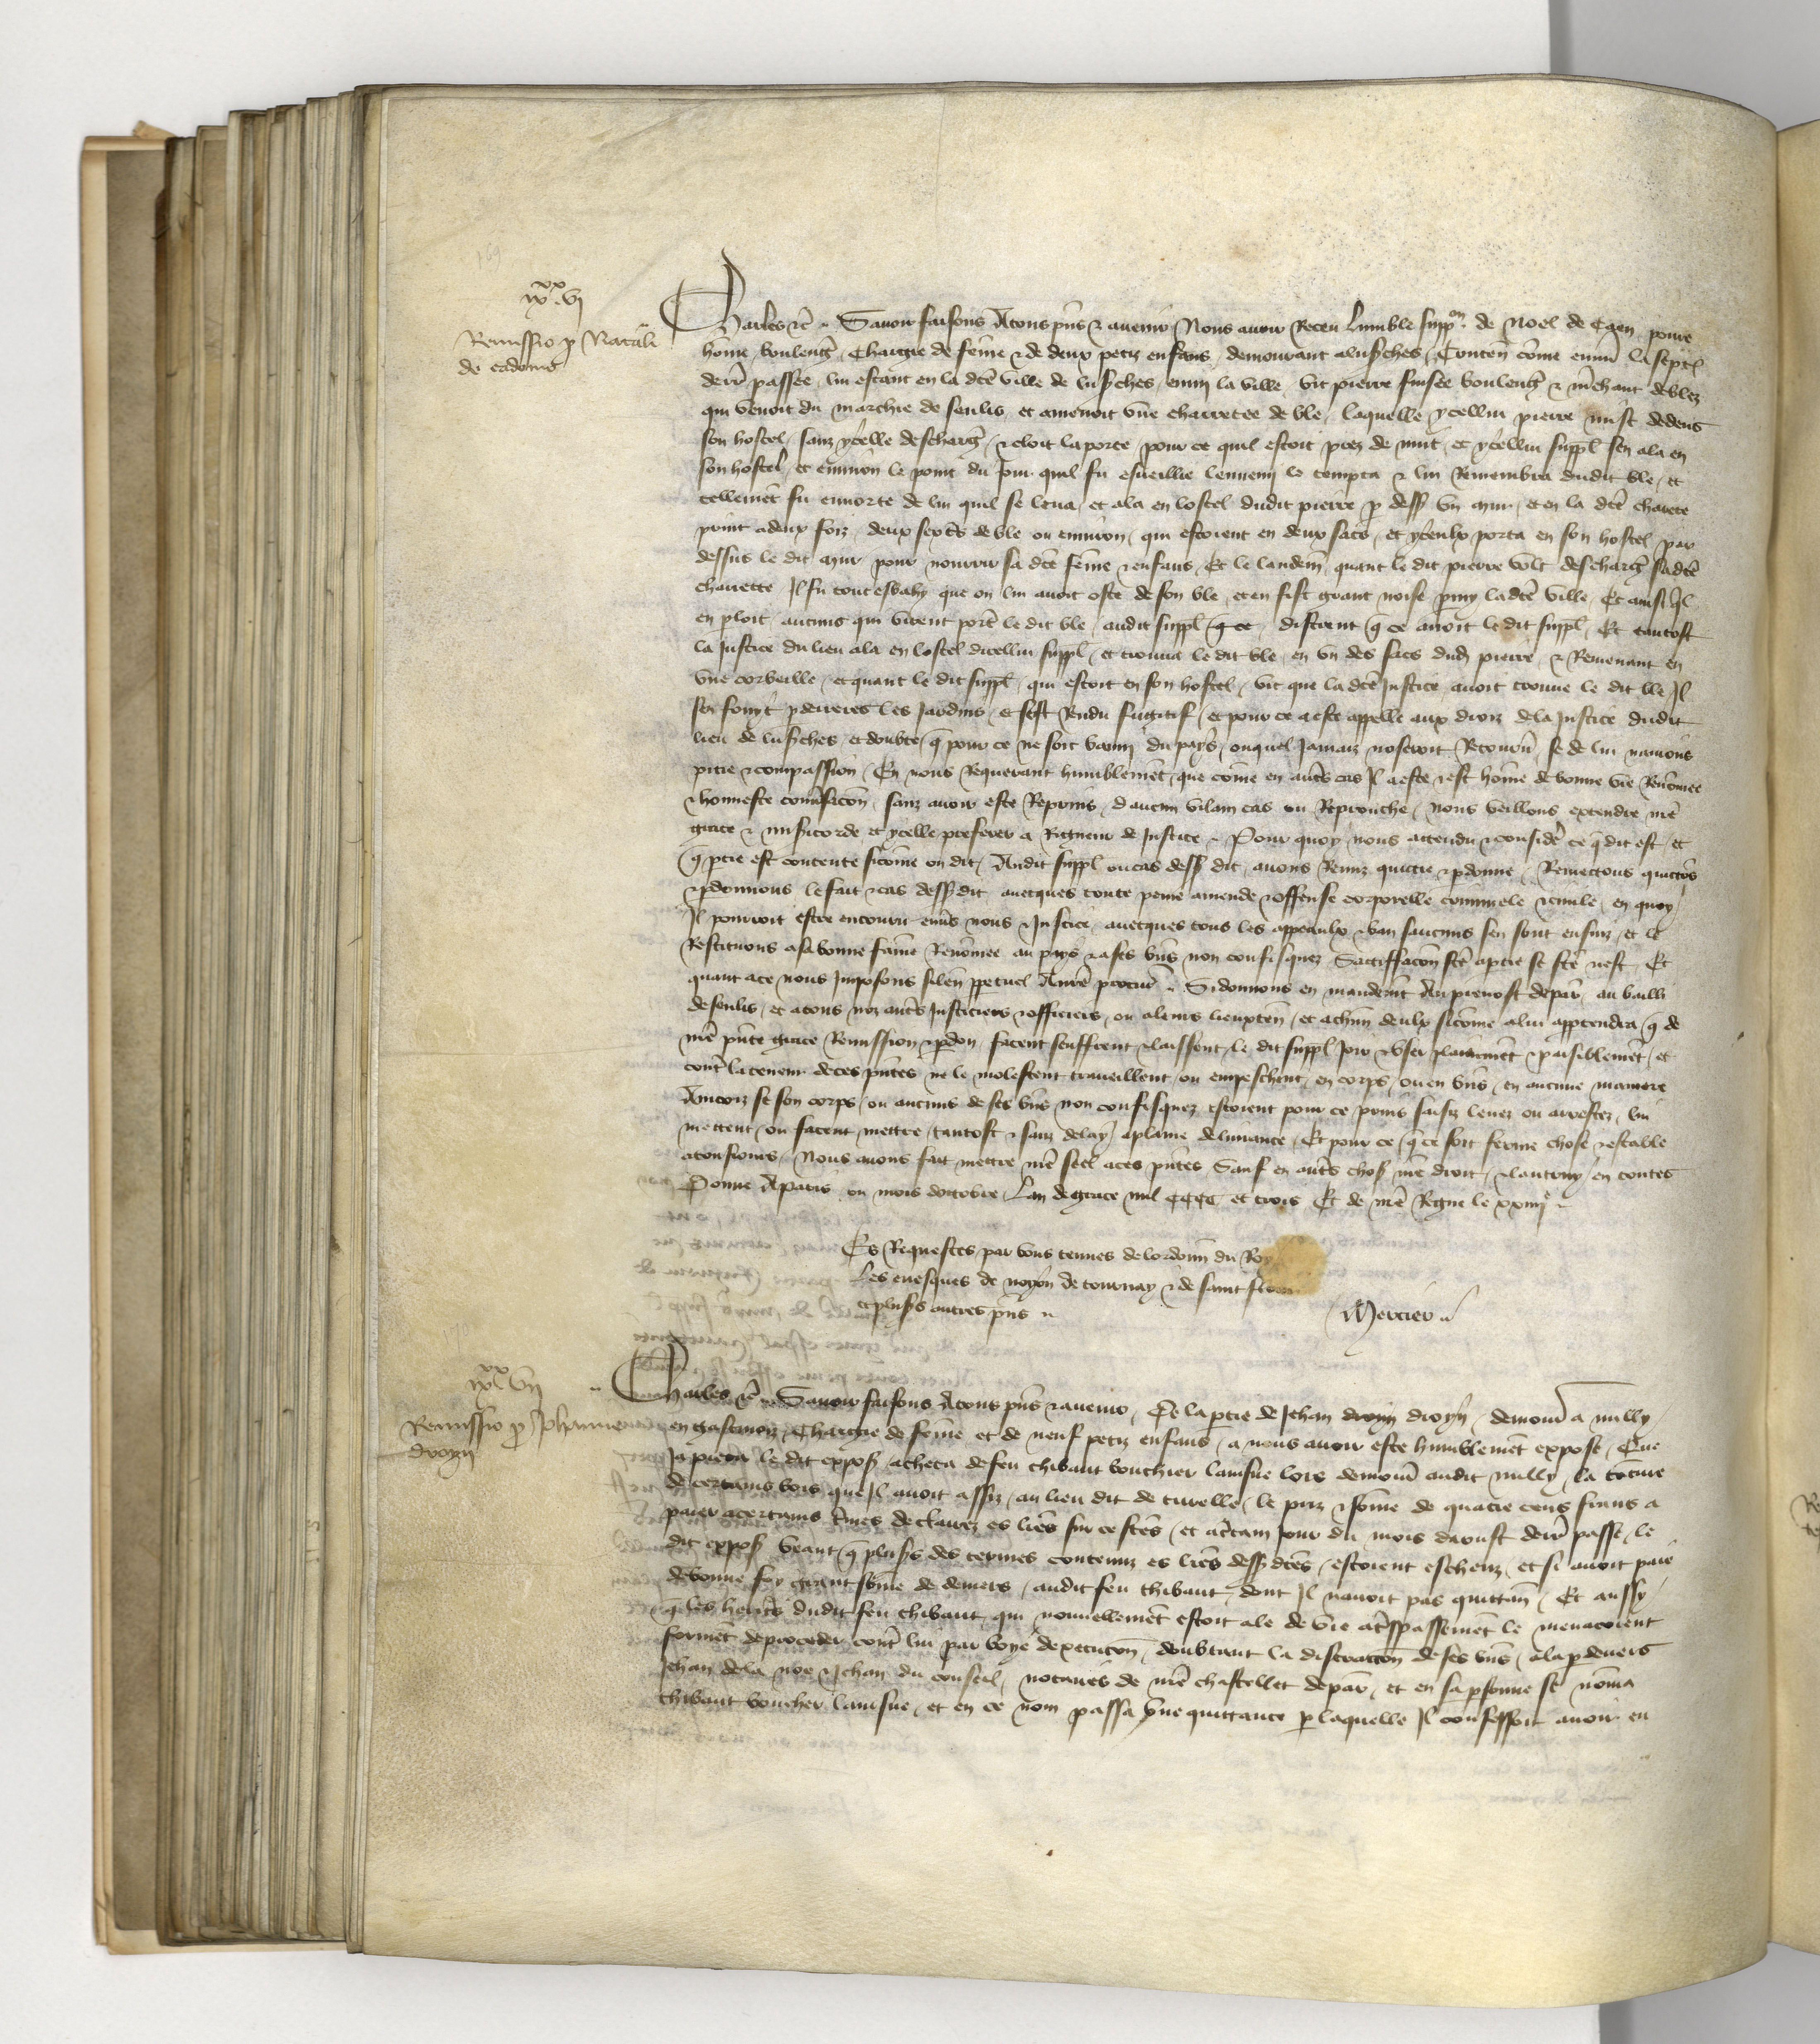 169
ix xx vi
Remissio p Natali
de cadomo
Charles etc. Savoir faisons Atous pns & avenir Nous avoir Receu lumble suppon de Noel de Caen povre
home boulengr Chargie de feme & de deux petiz enfans demourant a lusrches Conten come environ la septe
derr passee lui estant en la dte ville de lusrches emmy la ville vit pierre finsee boulengr & mrchant de blez
qui venoit du marchie de senlis et amenoit une charretee de ble laquelle ycellui pierre mist dedens
son hostel sanz ycelle deschargr & cloit la porte pour ce quil estoit prez de nuit et ycellui suppl sen ala en
son hostel et environ le point du jour quil fu esveillie lennemy le tempta & lui Remembra dudit ble et
tellemet fu enhorte de lui quil se leva et ala en lostel dudit pierre p dess un mur et en la dte charete
print a deux foiz deux sextrs de ble ou environ qui estoient en deux sacs et yceulx porta en son hostel par
dessus le dit mur pour nourrir sa dte feme & enfans Et le landem quant le dit pierre volt deschargr sadte
charrette Il fu tout esbahy que on lui avoit oste de son ble et en fist grant noise pmy la dte ville Et ainsi ql
en ploit aucuns qui virent portr le dit ble audit suppl q ce distrent q ce avoit le dit suppl Et tantost
la Justice du lieu ala en lostel dicellui suppl et trouva le dit ble en un des sacs dud pierre & Remenant en
une corbeille et quant le dit suppl qui estoit en son hostel vit que la dte Justice avoit trouve le dit ble Il
sen fouyt p derrieres les Jardins et sest Rendu fugitif et pour ce a este appelle aux droiz de la Justice dudit
lieu de lusrches et doubte q pour ce ne soit banny du pays ouquel Jamaiz noseroit Retournr se de lui navions
pitie & compassion En nous Requerant humblemet que come en autrs cas Il a este & est home de bonne vie Renomee
& honneste convsacon sanz avoir este Reprins daucun vilain cas ou Reprouche Nous veillons extendre nre
grace & misicorde et ycelle preferer a Rigueur de Justice Pour quoy nous attendu & considr ce q dit est et
q ptie est contente sicome on dit Audit suppl ou cas dess dit avons Remiz quittie & pdonne Remettons quittos
& pdonnons le fait & cas dess dit avecques toute peine amende & offense corporelle criminele & civile en quoy
Il pourroit estre encouru envs nous & Justice avecques tous les appeaulx & ban saucuns sen sont ensuiz et le
Restituons a sa bonne fame Renomee au pays & a ses bns non confisquez Sattiffacon fte a ptie se fte nest Et
quant a ce nous Imposons silen ppetuel A nre procur Si donnons en mandemt Au prevost de par au bailli
de senlis et a tous noz autrs Justiciers & officiers ou a leurs lieuxten et a chun deulx sicome a lui apptendra q de
nre pnte grace Remission & pdon facent seuffrent & laissent le dit suppl Joir & user plainemet & paisiblemet et
contr la teneur de ces pntes ne le molestent traveillent ou empeschent en corps ou en bns en aucune maniere
Aincoiz se son corps ou aucuns de ses bns non confisquez estoient pour ce prins saisiz levez ou arrestez lui
mettent ou facent mettre tantost & sanz delay a plaine delivrance Et pour ce q ce soit ferme chose & estable
a tousjours Nous avons fait mettre nre seel a ces pntes Sauf en autrs choss nre droit & lautruy en toutes
Donne A paris ou mois doctobre Lan de grace mil cccc et trois Et de nre Regne le xxiiije
Es Requestes par vous tenues de lordonn du Roy
Les evesques de noyon de tournay & de saint flour
et plusrs autres pns
Mercier
ix xx vii
Remissio p Johanne
droyn
Charles etc Savoir faisons Atous pns & avenir De la ptie de Jehan droyn droyn demour a milly
en gastinoiz Chargie de feme et de neuf petiz enfans a nous avoir este humblemet expose Que
Ja pieca le dit expos acheta de feu thibaut bouchier lainsne lors demour audit milly la tocture
de certains bois que Il avoit assiz au lieu dit de turelles le priz & some de quatre cens frans a
paier a certains trmes declairez es lres sur ce ftes et a crtain jour du mois daoust derr passe le
dit expos veant q plusrs des termes contenuz es lres dess dtes estoient escheuz et si avoit paie
de bonne foy grant some de deniers audit feu thibaut dont Il navoit pas quittan Et aussy
q les heritrs dudit feu thibaut qui nouvellemet estoit ale de vie a trspassemet le menacoient
formet de proceder contr lui par voye dexecucon doubtant la distraccon de ses bns ala p devers
Jehan de la noe & Jehan du conseil notaires de nre chastellet de par et en sa psonne se noma
thibaut boucher lainsne et en ce nom passa une quittance p laquelle Il confessoit avoir eu